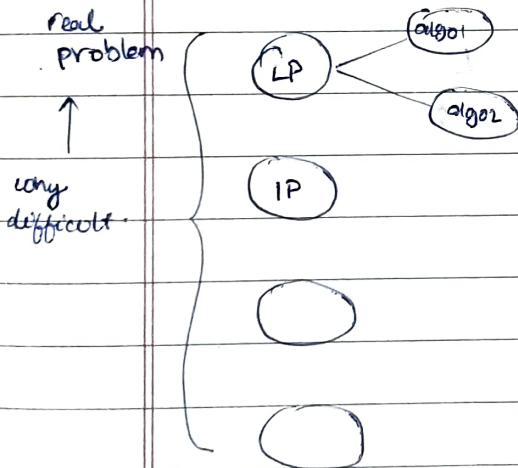 real
problem
why
difficult.
LP
algo1
algo2
IP